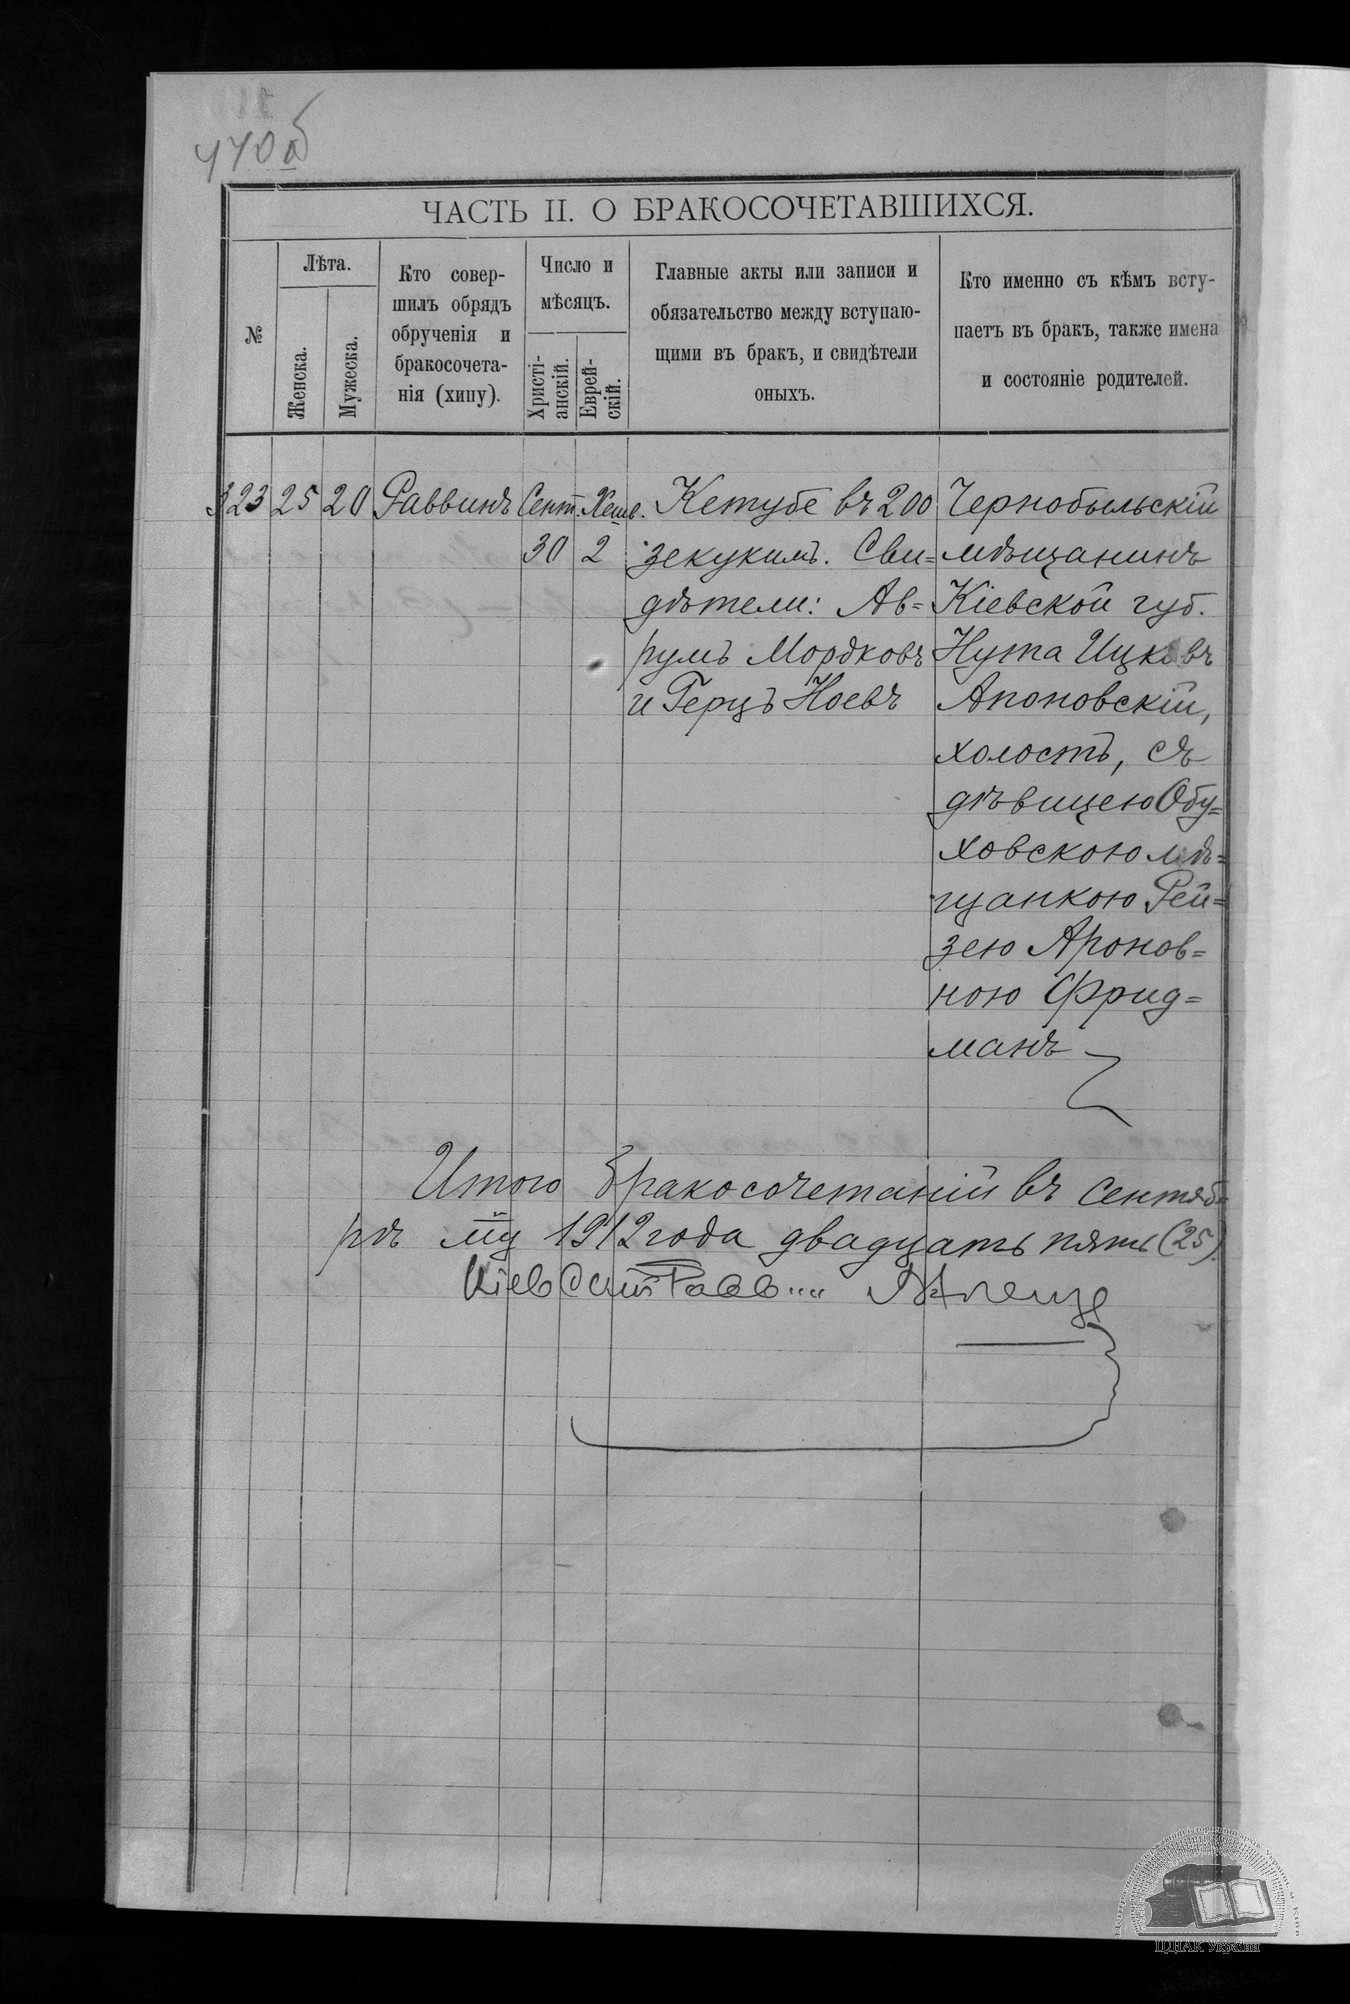 440 об
ЧАСТЬ II. О БРАКОСОЧЕТАВШИХСЯ.
№
Лѣта.
Женска.
Мужеска.
Кто совер-
шилъ обрядъ
обрученія и
бракосочета-
нія (хипу).
Число и
мѣсяцъ.
Христі-
анскій.
Еврей-
скій.
Главные акты или записи и
обязательство между вступаю-
щими въ бракъ, и свидѣтели
оныхъ.
Кто именно съ кѣмъ всту-
паетъ въ бракъ, также имена
и состояніе родителей.
323 25 20 Раввинъ Сент. Хешв.
30 2
Кетубе въ 200
зекукимъ. Сви=
дѣтели: Ав=
румъ Мордковъ
и Герцъ Ноевъ
Чернобыльскій
мѣщанинъ
Кіевской губ.
Нута Ицковъ
Апоновскій,
холостъ, съ
дѣвицею Обу=
ховскою мѣ=
щанкою Рей=
зею Аронов=
ною Фрид=
манъ
Итого бракосочетаній въ Сентяб=
рѣ м-ц 1912 года двадцать пять (25).
Кіевскій Равв....
ЦДІАК України